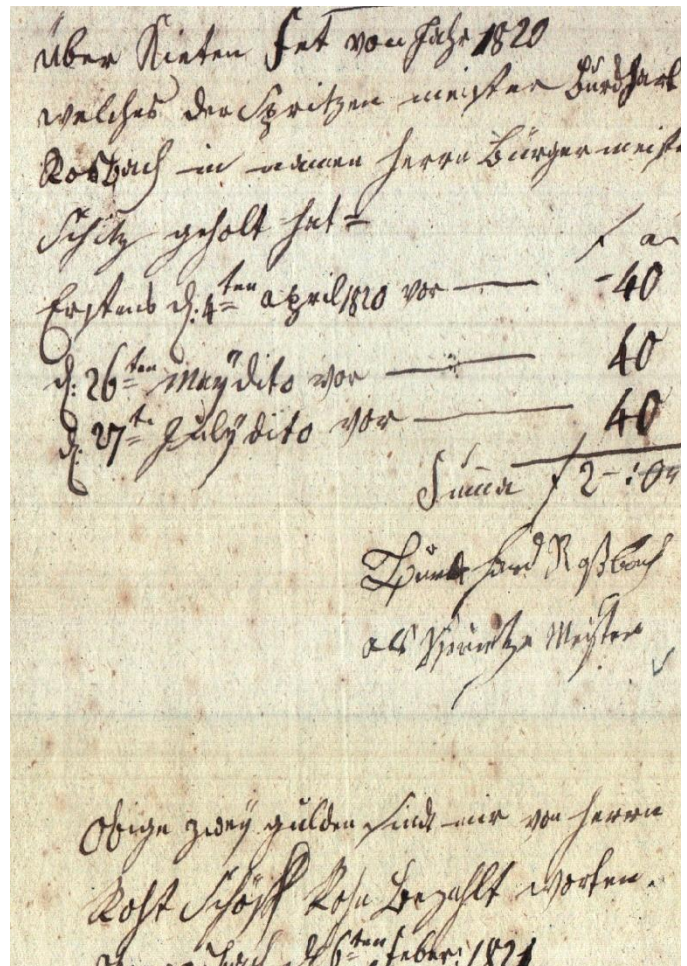 über Kieten Fet von Jahr 1820
welches der Spritzen meister Burdhart
Rosbach in namen Herrn Bürgermeiste
Schitz geholt hat =
f a
Erstens d: 4ten april 1820 vor — -40
d: 26ten Maÿ dito vor — 40
d: 27t. Julÿ dito vor — 40
Suma f 2-:0
hard Roßbach
als Meister
Obige zweÿ gulden sind mir von Herrn
Schöff Bezahlt worten.
d 6ten Feber: 1821